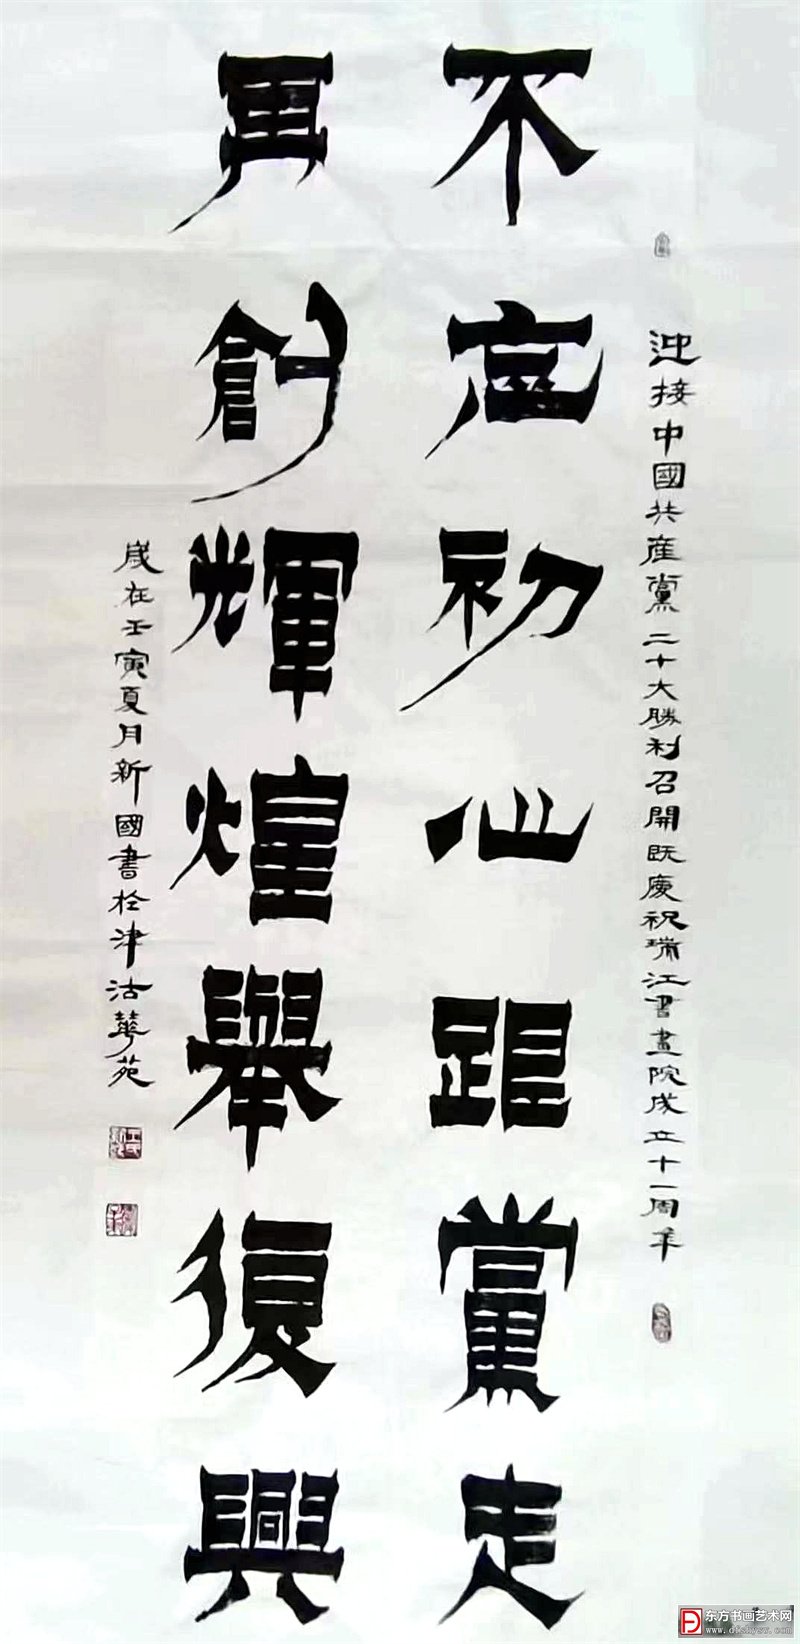 迎接中國共産黨二十大勝利召開既慶祝瑞江書畫院成立十一周年
不忘初心跟黨走
再創輝煌舉復興
歲在壬寅夏月新國書於津沽華苑
东方书画艺术网